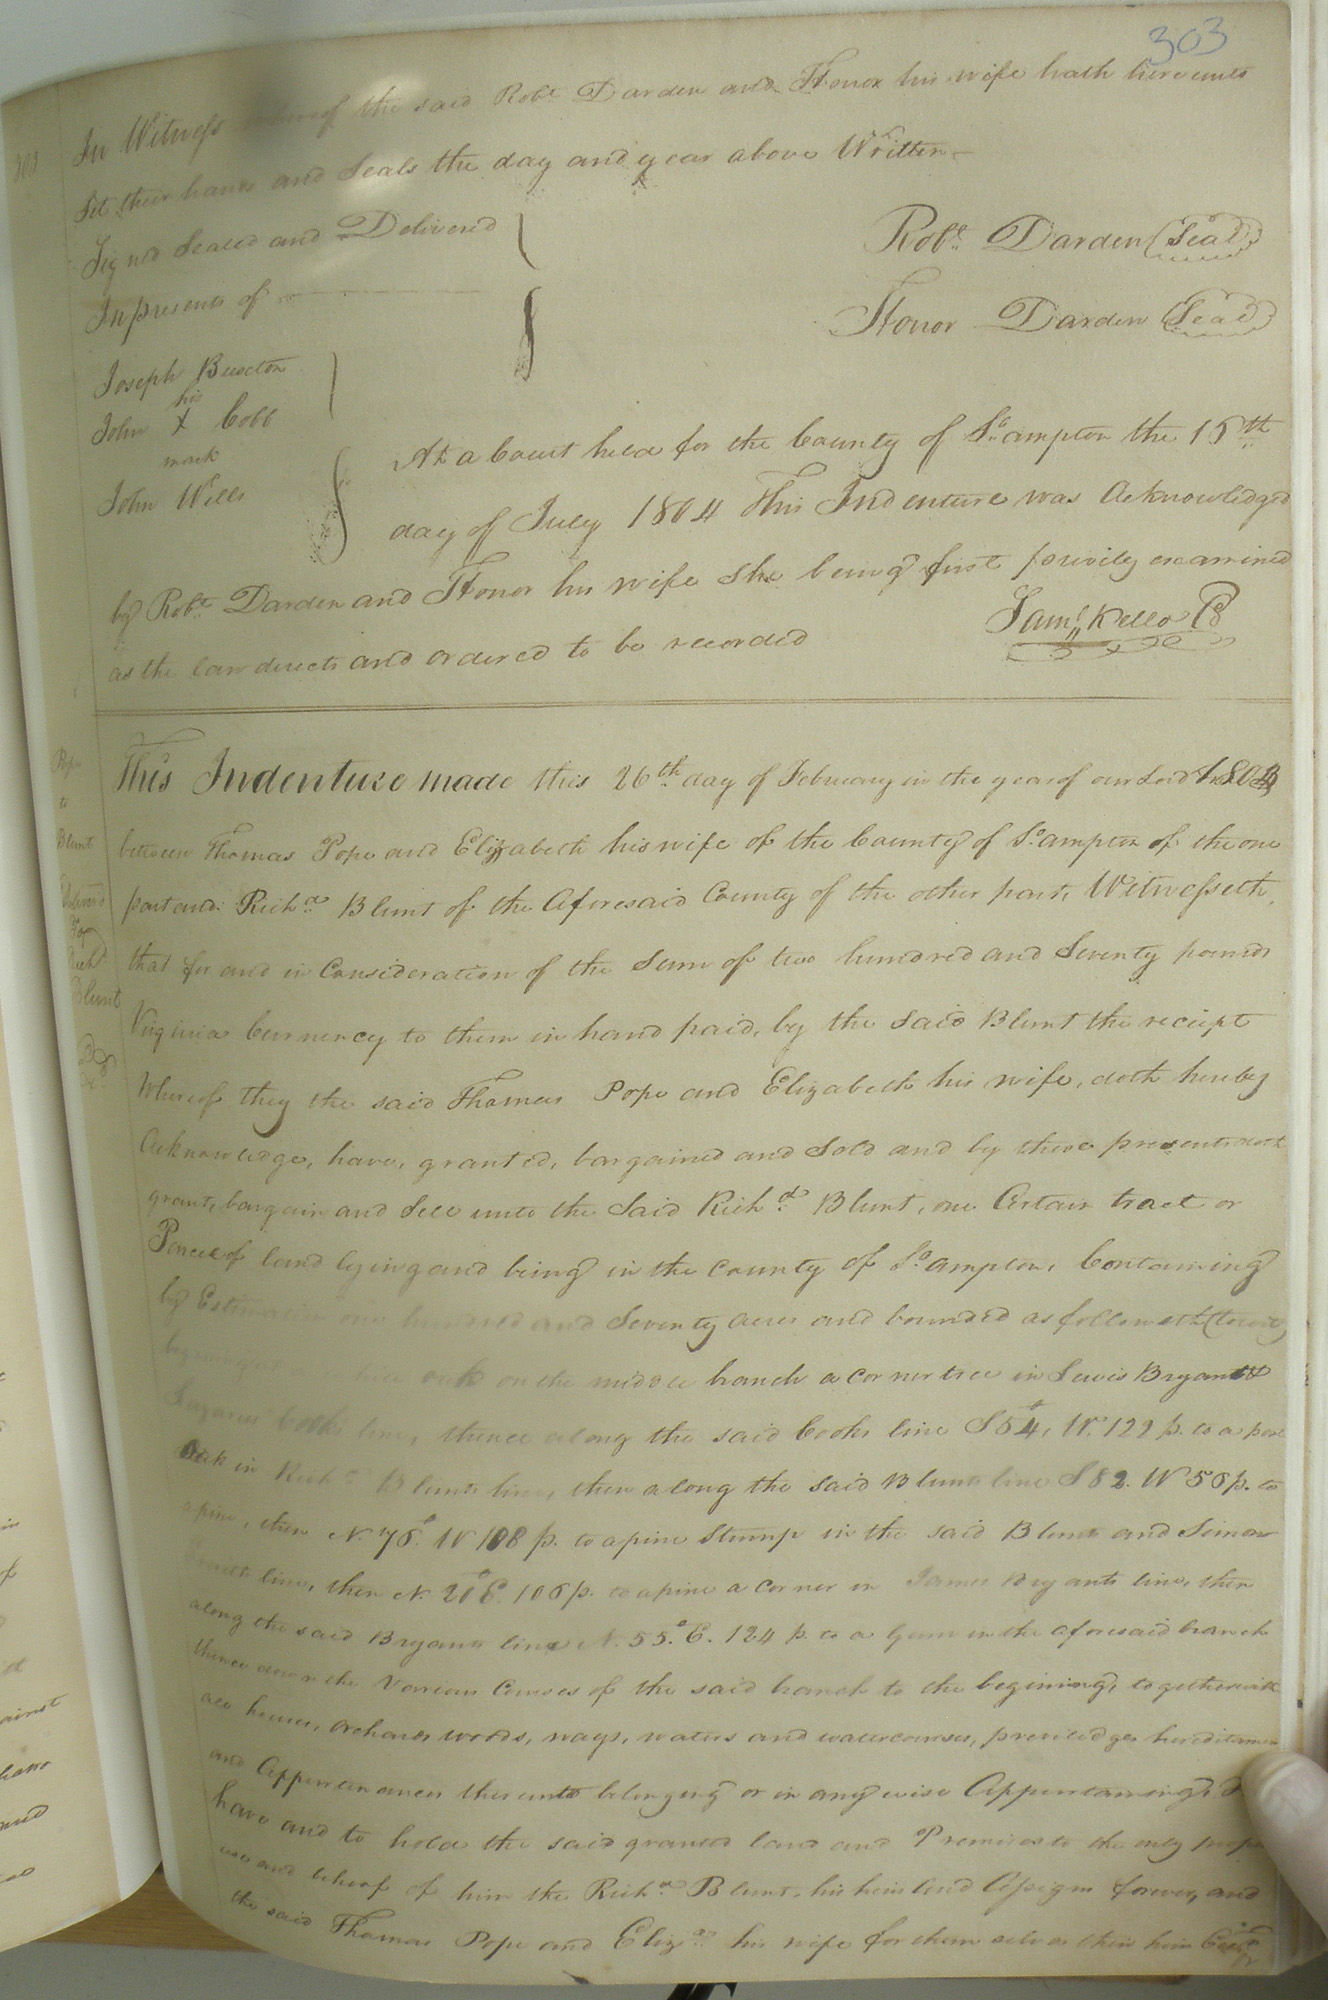 303
303
In Witness whereof the said Robt. Darden and Honor his wife hath hereunto
Set their hands and Seals the day and year above Written
Sign'd Sealed and Delivered
In presents of
Robt. Darden (Seal)
Honor Darden (Seal)
Joseph Buxton
his
John X Cobb
mark
John Wills
At a Court held for the County of So.ampton the 16th
day of July 1804 This Indenture was Acknowledged
by Robt. Darden and Honor his wife She being first privily examined
as the law directs and ordered to be recorded
Saml. Kello
Pope
to
Blunt
Delivered
Richd
Blunt
This Indenture made this 26th day of February in the year of our Lord 1804
between Thomas Pope and Elizabeth his wife of the County of So.ampton of the one
part and Richd. Blunt of the Aforesaid County of the other part, Witnesseth,
that for and in Consideration of the Sum of two hundred and Seventy pounds
Virginia Currency to them in hand paid, by the said Blunt the reciept
Whereof they the said Thomas Pope and Elizabeth his wife, doth hereby
Acknowledge, have, granted, bargained and Sold and by these presents doth
grant, bargain and Sell unto the Said Richd. Blunt, one Certain tract or
Parcel of land lying and being in the County of So.ampton, Containing
by Estimation one hundred and Seventy acres and bounded as followeth (towit)
begining at a white oak on the middle branch a corner tree in Lewis Bryant &
Lazarus Cooks line, thence along the said Cooks line S 54, W. 122 p. to a post
Oak in Richd. Blunts line, then along the said Blunts line S 82. W 56 p. to
a pine, then N. 76°. W 108 p. to a pine Stump in the said Blunts and Simon
line, then N. 20° E. 106 p. to a pine a corner in James Bryants line, then
along the said Bryants line N. 55.° E. 124 p. to a Gum in the aforesaid branch
thence down the Various Courses of the said branch to the begining, together with
all houses, orchards woods, ways, waters and watercourses, previledges hereditamen
and Appurtenances thereunto belonging or in any wise Appurtaining,
have and to hold the said granted land and Premises to the only prope
use and behoof of him the Richd. Blunt, his heirs and Assigns forever, and
the said Thomas Pope and Eliza. his wife for them selves their heirs